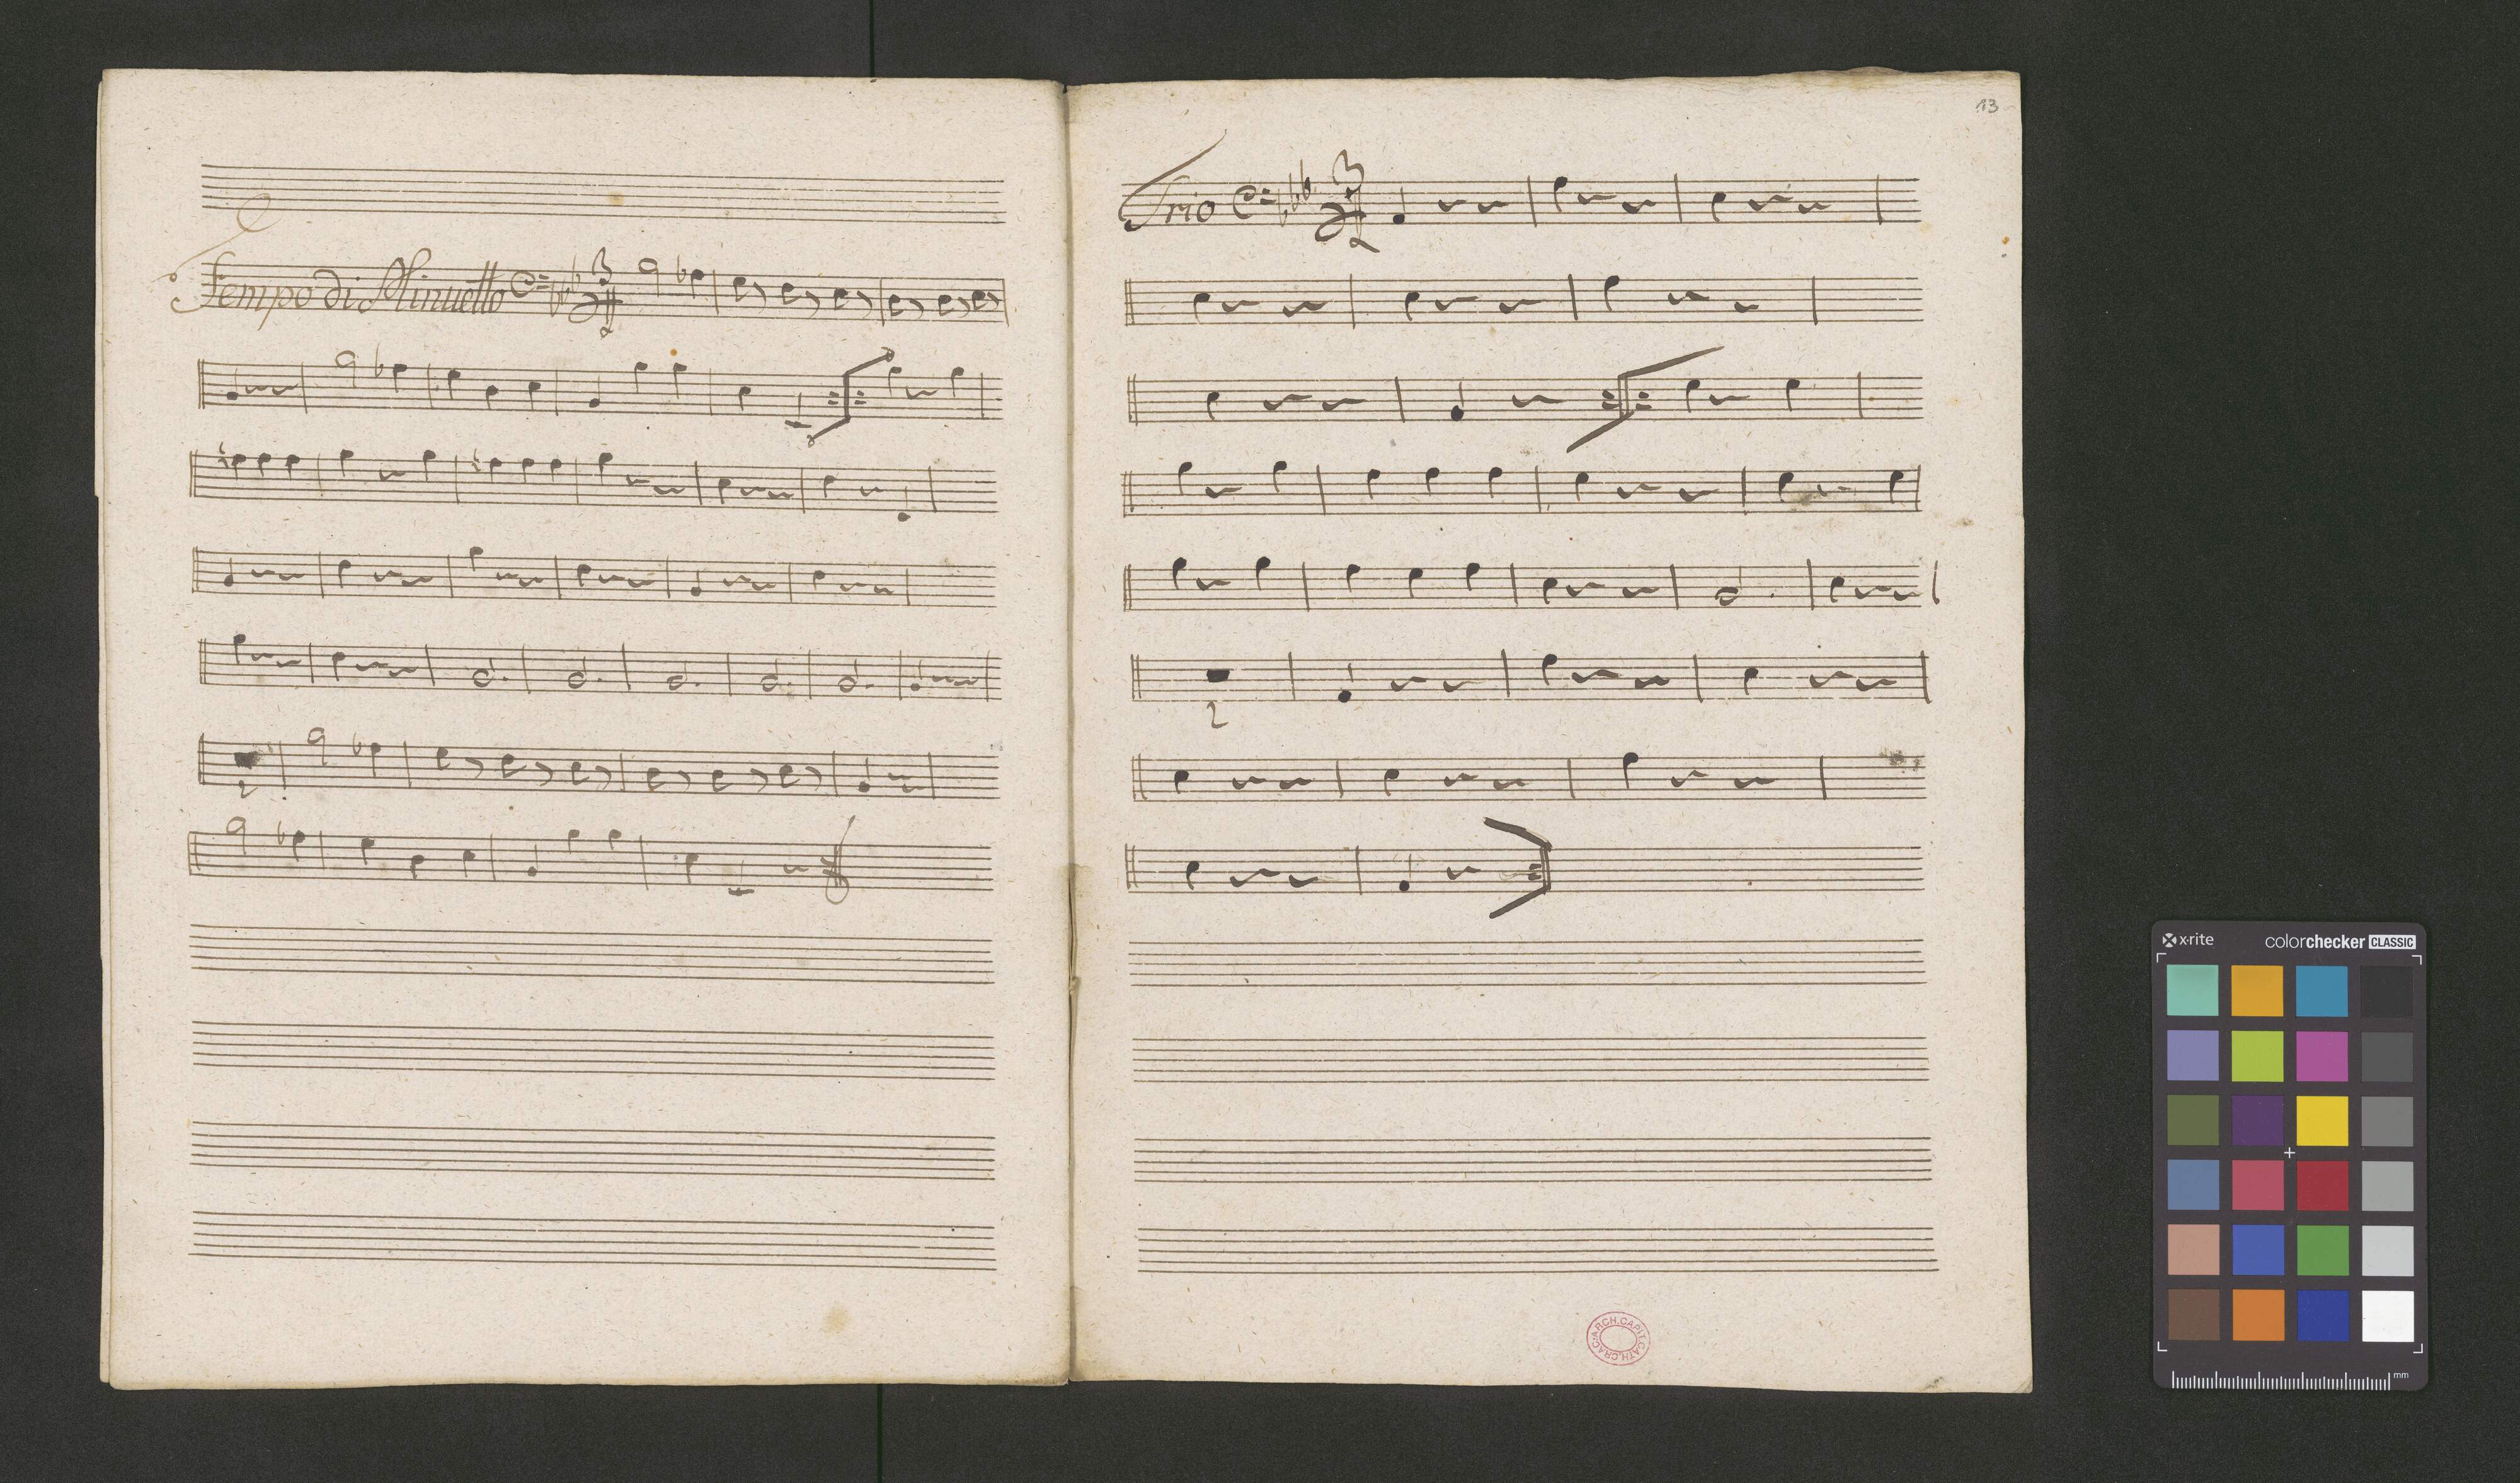 Tempo di Minuetto
2
13
Trio
2
ARCH. CAPIT. CATH. CRAC.
x-rite colorchecker CLASSIC
mm